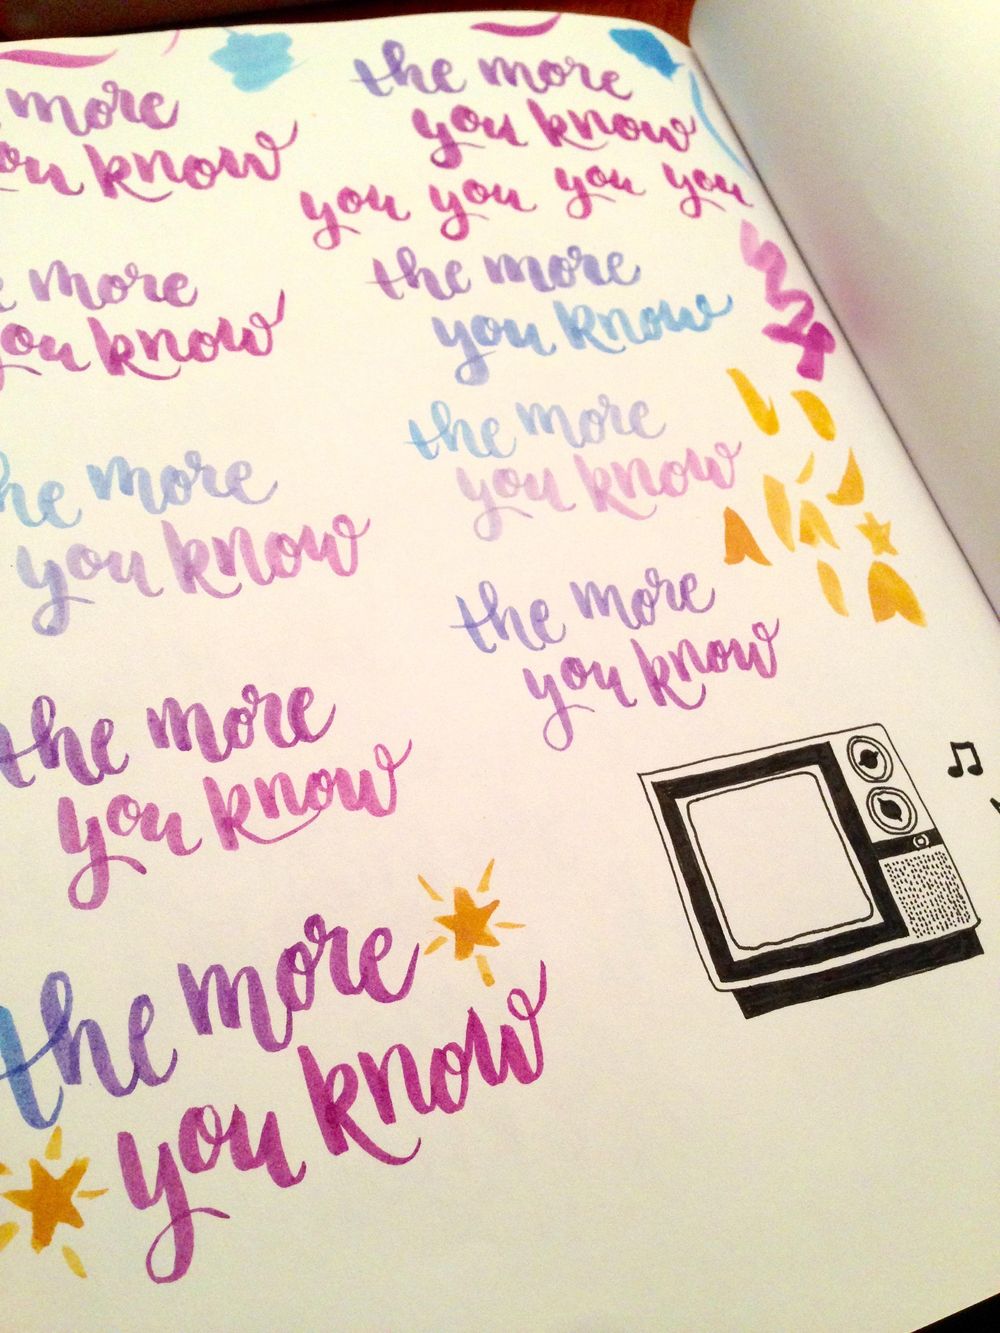 more
you know
the more
you know
the more
you know
the more
you know
the more
you know
the more
you know
you you you you
the more
you know
the more
you know
the more
you know